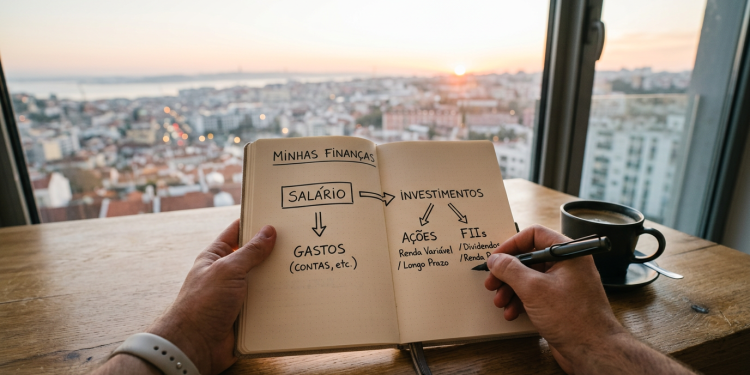 MINHAS FINANÇAS
SALÁRIO
GASTOS
(CONTAS, etc.)
INVESTIMENTOS
AÇÕES
Renda Variável
/ Longo Prazo
FIIs
/ Dividendos
/ Renda